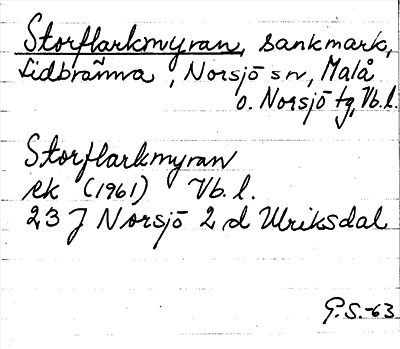 Storflarkmyran, sankmark,
Lidbränna, Norsjö sn, Malå
o. Norsjö tg, Vb. l.
Storflarkmyran
ek (1961) Vb. l.
23 J Norsjö 2 d Ulriksdal
G.S.-63